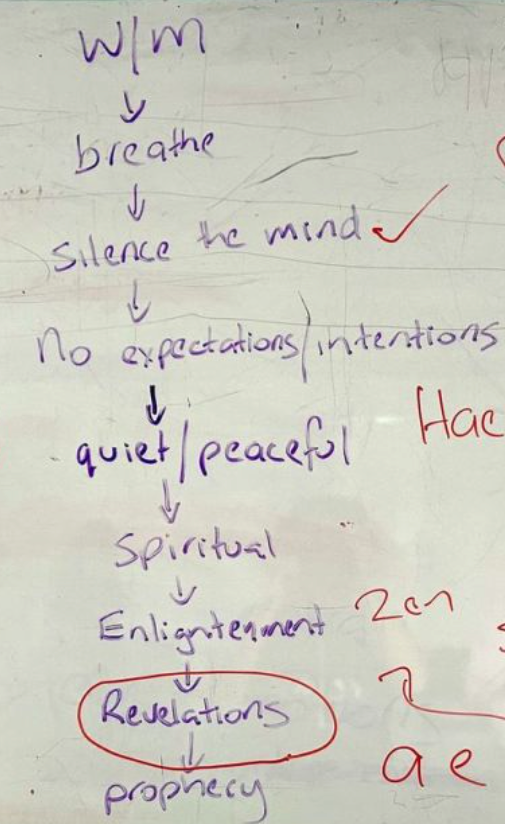 W/M
breathe
Silence the mind
No expectations/intentions
Hae
quiet/peaceful
Spiritual
Enlightenment Zen
Revelations
ae
prophecy